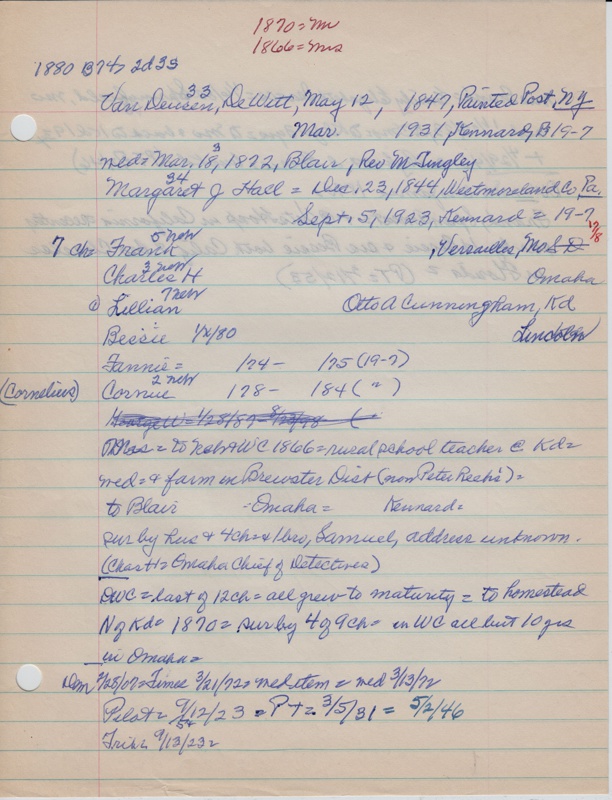 1870 = Mr
1866 = Mrs
1880 B74> 2d33
33
Van Deusen, DeWitt, May 12, 1847, Painted Post, NY
Mar. 1931, Kennard, B 19-7
3
med = Mar. 18, 1872, Blair, Rev M Tingley
34
Margaret J Hall = Dec. 23, 1844, Westmoreland Co, Pa.
Sept. 5, 1923, Kennard = 19-7
7 ch = Frank 5 new, Versailles, Mo 7/8
Charles H 3 new Omaha
Lillian 7 new Otto A Cunningham, Kd
Bessie 1/2/80 Lincoln
Fannie = 174 - 175 (19-7)
(Cornelius) Cornie 2 new 178 - 184 ( " )
Mrs = to Neb & WC 1866 = rural school teacher @ Kd =
med = & farm in Brewster Dist (now Peter Resh's) =
to Blair - Omaha = Kennard =
sur by hus & 4 ch = & 1 bro, Samuel, address unknown.
(Chas H = Omaha Chief of Detectives)
DWC = last of 12 ch = all grew to maturity = to homestead
N of Kd = 1870 = sur by 4 of 9 ch = in WC all but 10 yrs
in Omaha =
Dem 9/25/07 = Times 3/21/72 = med item = med 3/13/72
Pilot = 9/12/23 = P T = 3/5/31 = 5/2/46
Trib = 9/13/23 =